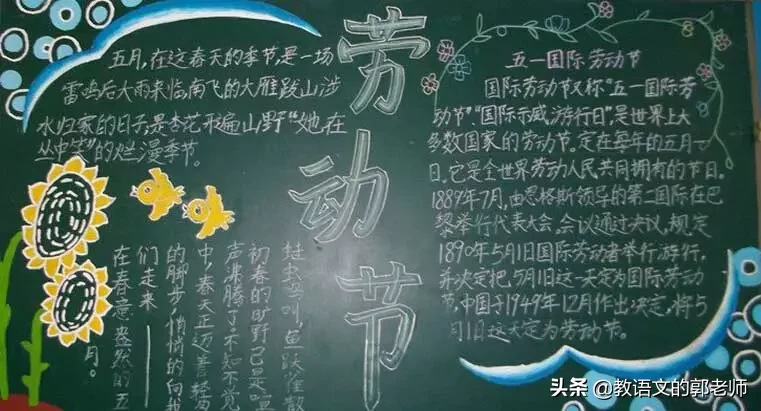 五月,在这春天的季节,是一场
雷鸣后大雨来临,南飞的大雁跋山涉
水归家的日子,是杏花形遍山野“她在
丛中笑”的烂漫季节。
劳动节
蛙虫鸟叫,鱼跃雀散
初春的旷野,已是喧
声沸腾了。不知不觉
中,春天正迈着轻盈
的脚步,悄悄的向我
们走来——
在春意盎然的五
月。
五一国际劳动节
国际劳动节又称“五一国际劳
动节”“国际示威游行日”,是世界上大
多数国家的劳动节。定在每年的五月一
日。它是全世界劳动人民共同拥有的节日。
1889年7月,由恩格斯领导的第二国际在巴
黎举行代表大会。会议通过决议,规定
1890年5月1日国际劳动者举行游行,
并决定把5月1日这一天定为国际劳动
节,中国于1949年12月作出决定,将5
月1日这天定为劳动节。
头条 @教语文的郭老师